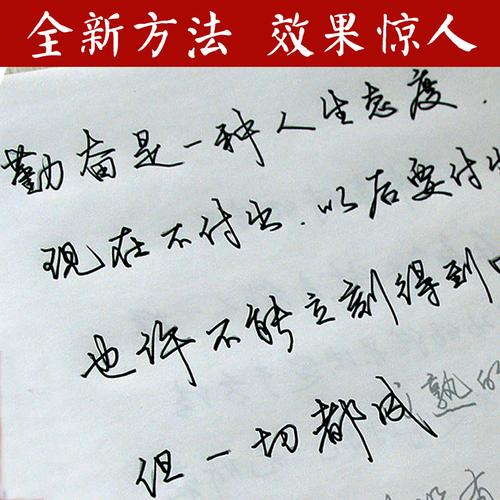 全新方法 效果惊人
勤奋是一种人生态度.
现在不付出.以后要付出
也许不能立刻得到
但一切都成熟的